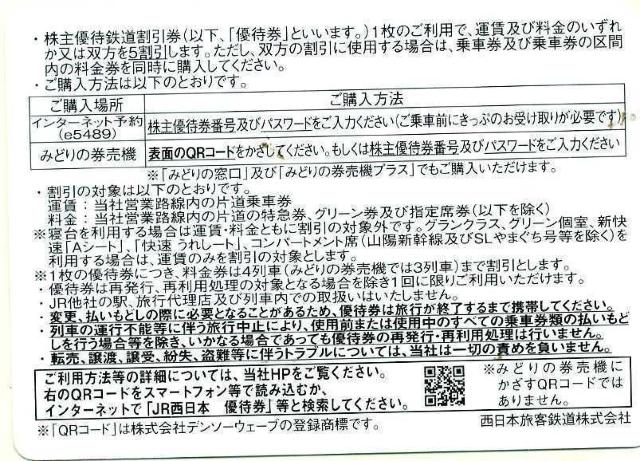 ・株主優待鉄道割引券(以下、「優待券」といいます。)1枚のご利用で、運賃及び料金のいずれ
か又は双方を5割引します。ただし、双方の割引に使用する場合は、乗車券及び乗車券の区間
内の料金券を同時に購入してください。
・ご購入方法は以下のとおりです。
ご購入場所 ご購入方法
インターネット予約 (e5489) 株主優待券番号及びパスワードをご入力ください(ご乗車前にきっぷのお受け取りが必要です)
みどりの券売機 表面のQRコードをかざしてください。もしくは株主優待券番号及びパスワードをご入力ください
※「みどりの窓口」及び「みどりの券売機プラス」でもご購入いただけます。
・割引の対象は以下のとおりです。
運賃：当社営業路線内の片道乗車券
料金：当社営業路線内の片道の特急券、グリーン券及び指定席券(以下を除く)
※寝台を利用する場合は運賃・料金ともに割引の対象外です。グランクラス、グリーン個室、新快
速「Aシート」、「快速 うれしート」、コンパートメント席(山陽新幹線及びSLやまぐち号等を除く)を
利用する場合は、運賃のみを割引の対象とします。
※1枚の優待券につき、料金券は4列車(みどりの券売機では3列車)まで割引とします。
・優待券は再発行、再利用処理の対象となる場合を除き1回に限りご利用いただけます。
・JR他社の駅、旅行代理店及び列車内での取扱いはいたしません。
・変更、払いもどしの際に必要となることがあるため、優待券は旅行が終了するまで携帯してください。
・列車の運行不能等に伴う旅行中止により、使用前または使用中のすべての乗車券類の払いもど
しを行う場合等を除き、いかなる場合であっても優待券の再発行・再利用処理は行いません。
・転売、譲渡、譲受、紛失、盗難等に伴うトラブルについては、当社は一切の責めを負いません。
ご利用方法等の詳細については、当社HPをご覧ください。
右のQRコードをスマートフォン等で読み込むか、
インターネットで「JR西日本 優待券」等と検索してください。
※みどりの券売機に
かざすQRコードでは
ありません。
※「QRコード」は株式会社デンソーウェーブの登録商標です。
西日本旅客鉄道株式会社